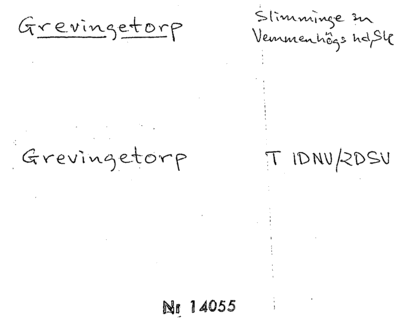 Grevingetorp
Slimminge sn
Vemmenhögs hd, Sk
Grevingetorp
T 1DNV/2DSV
Nr 14055